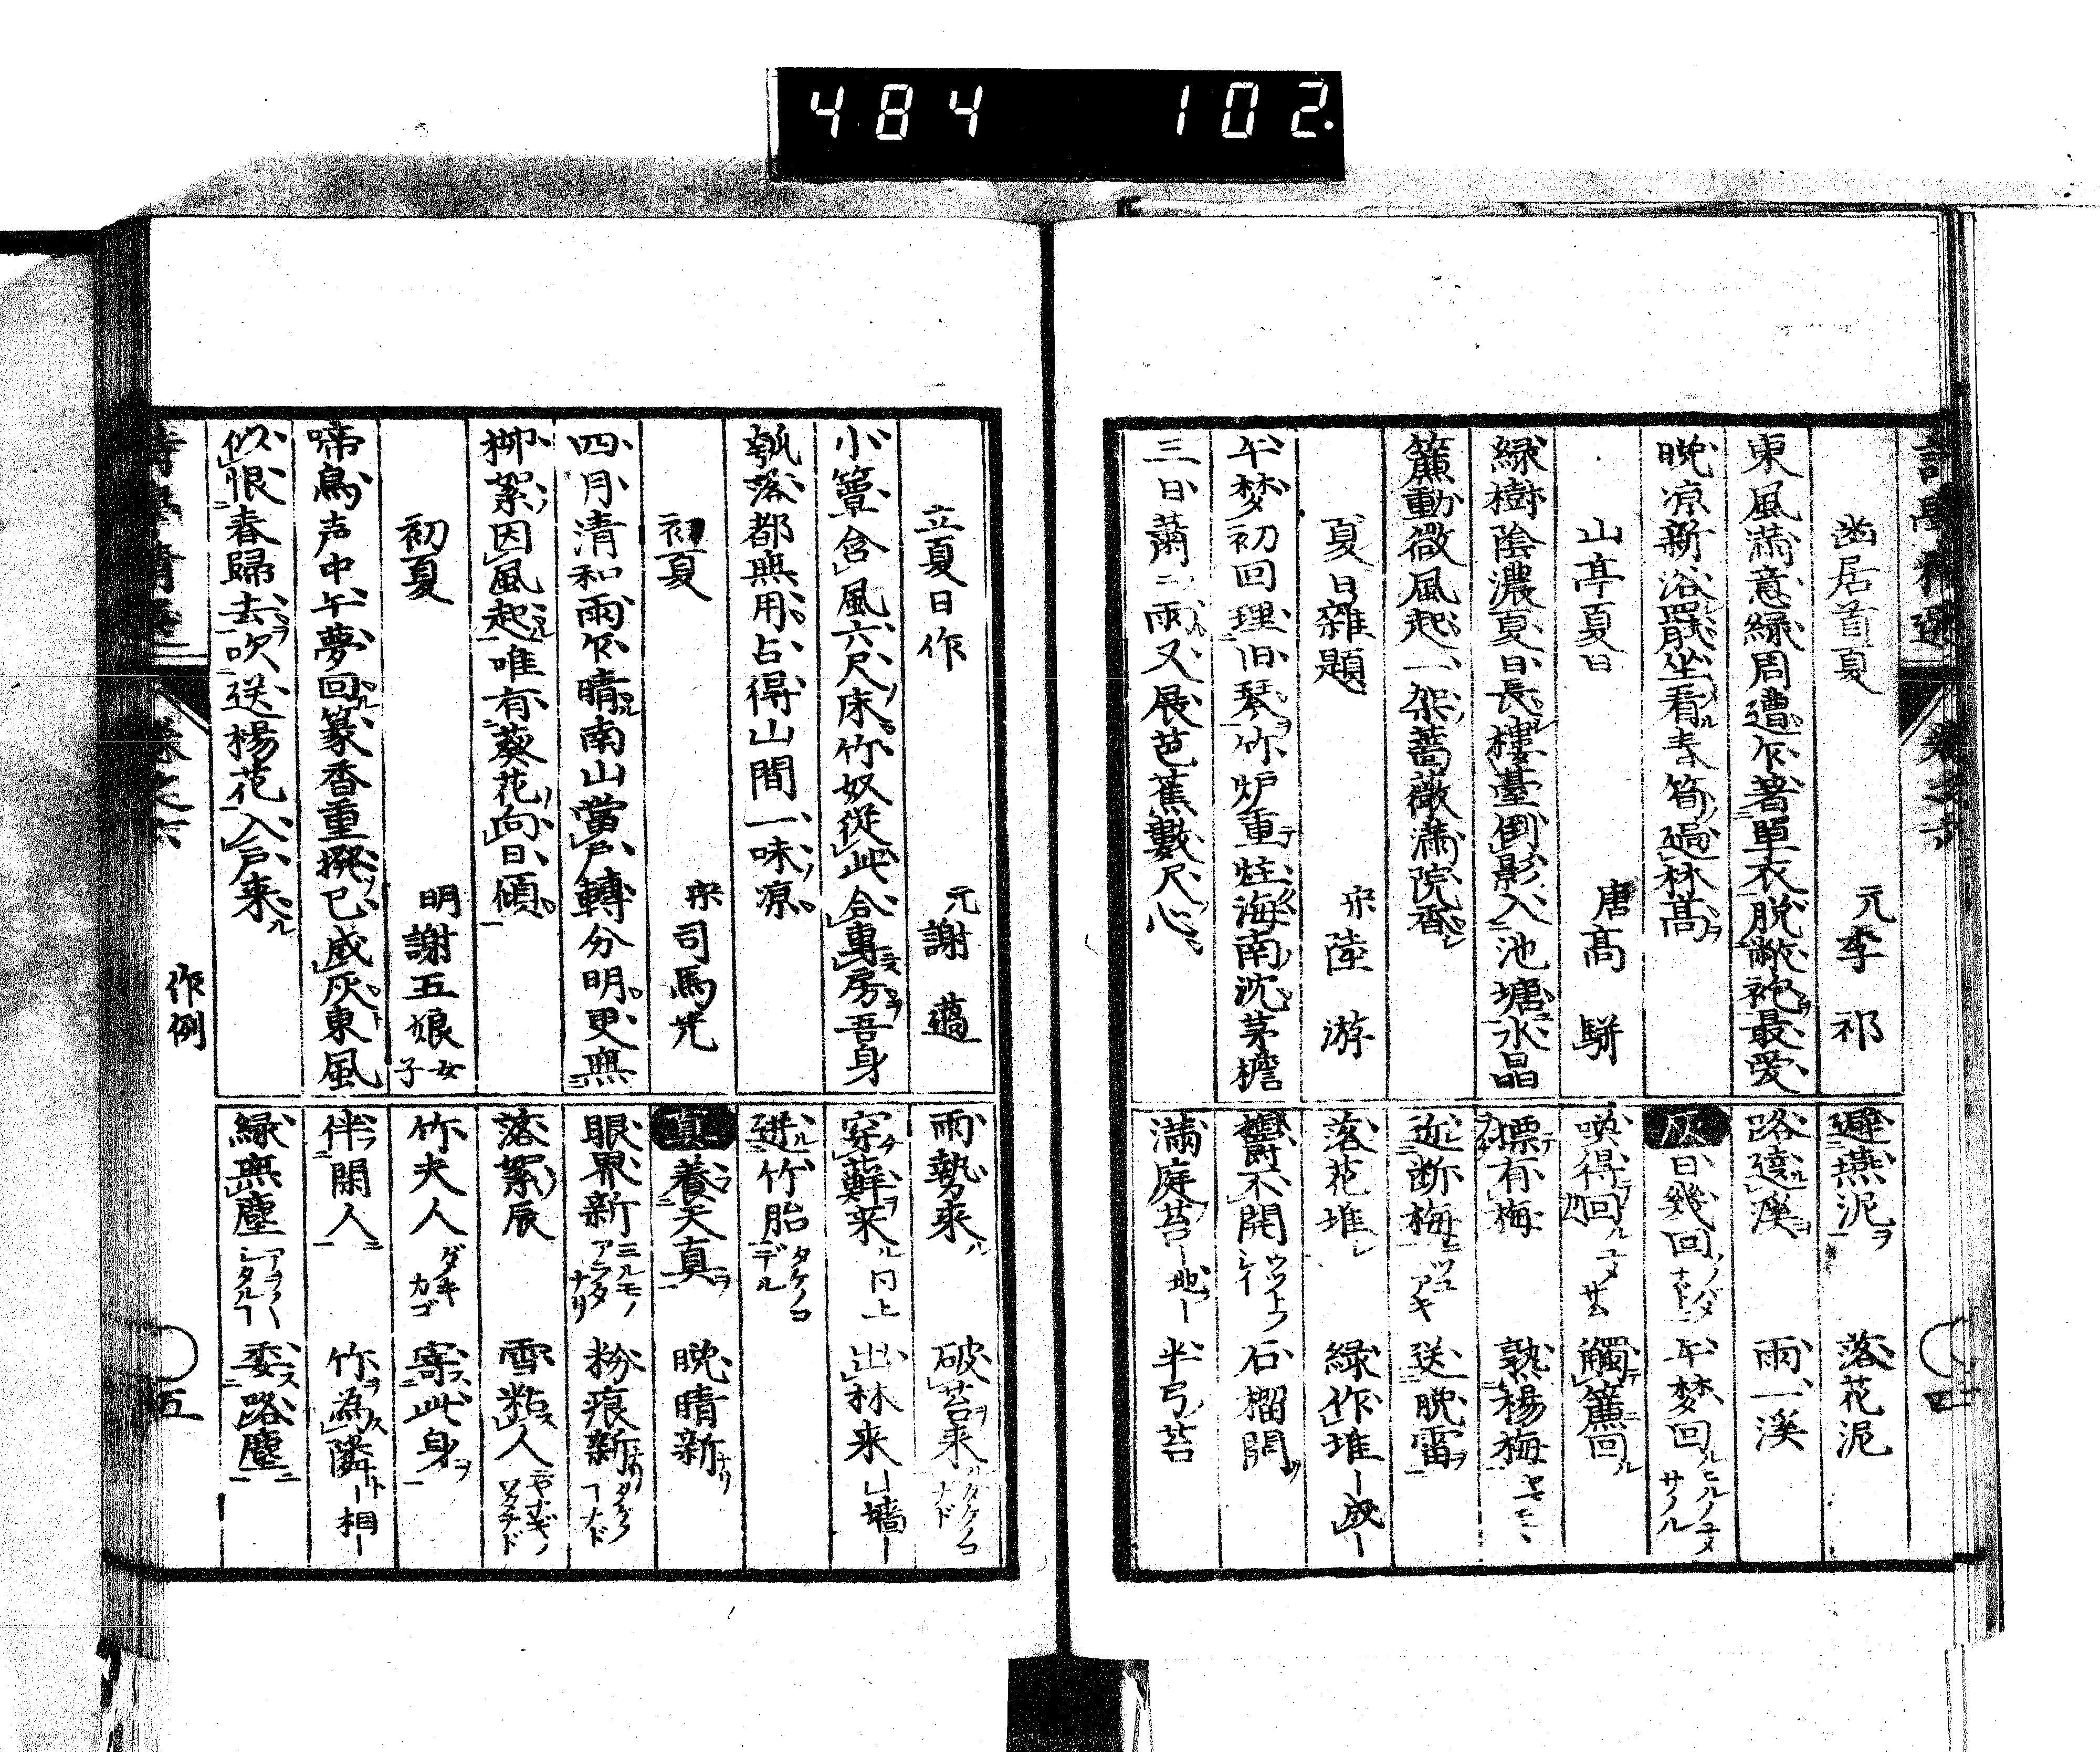 484 102.
幽居首夏 元李祁
東風満意緑周遭乍著單衣脱敝袍最愛
晩凉新浴罷坐看春筍過林髙
山亭夏日 唐髙駢
緑樹陰濃夏日長樓臺倒影入池塘水晶
簾動微風起一架薔薇満院香
夏日雜題 宋陸游
午梦初回理旧琴竹炉重炷海南沈茅檐
三日蕭蕭雨又展芭蕉數尺心
避燕泥ヲ 落花泥
路遶溪ヲ 雨一溪
灰 日幾回 午梦回
喚得回 觸簾回
摽有梅 熟楊梅
近断梅 送晩雷
落花堆 緑作堆 成
欝不開 石榴開
満庭苔 地 半弓苔
四
立夏日作 元謝薖
小簟含風六尺床竹奴從此合専房吾身
瓠落都無用占得山間一味凉
初夏 宋司馬光
四月清和雨乍晴南山當戸轉分明更無
柳絮因風起唯有葵花向日傾
初夏 明謝五娘女子
啼鳥声中午夢回篆香重撥已成灰東風
似恨春歸去吹送楊花入戸来
雨勢來 破苔来
穿蘚来 同上 出林来 墻
迸竹胎 タケノコデル
真 養天真 晩晴新
眼界新 ミルモノアラタナリ 粉痕新
落絮辰 雪粘人
竹夫人 ダキカゴ 寄此身
伴閑人 竹為隣 相
緑無塵 委路塵
作例
五